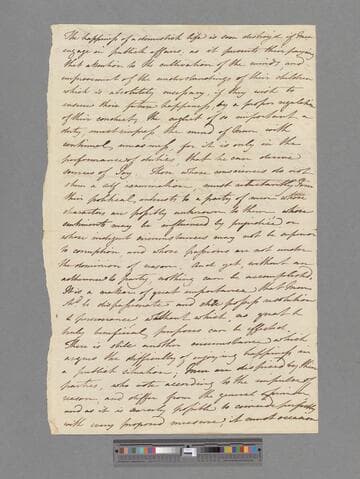 The happiness of a domestick life is soon destroy'd if Men
engage in publick affairs, as it prevents their paying
that attention to the cultivation of the minds, and
improvement of the understandings of their children
which is absolutely necessary, if they wish to
ensure their future happiness, by a proper regulation
of their conduct, the neglect of so important a
duty must impress the mind of Man with
continual uneasiness, for it is only in the
performance of duties, that he can derive
sources of Joy. Those whose consciences do not
shun a self examination, must reluctantly
their political interests to a party of men whose
characters are possibly unknown to them whose
sentiments may be influenced by prejudice or
whose indigent circumstances may not be superior
to corruption and whose passions are not under
the dominion of reason, and yet without an
adherence to party, nothing can be accomplished.
It is a matter of great importance, that Man
shd be dispassionate and possess resolution
& perseverance without which, no great &
truly beneficial purposes can be effected.
There is still another circumstance which
argues the difficulty of enjoying happiness in
a publick situation; Men are despised by their
parties, who vote according to the impulse of
reason and differ from the general opinion,
and as it is scarcely possible to coincide perfectly
with every proposed measure; it must occasion